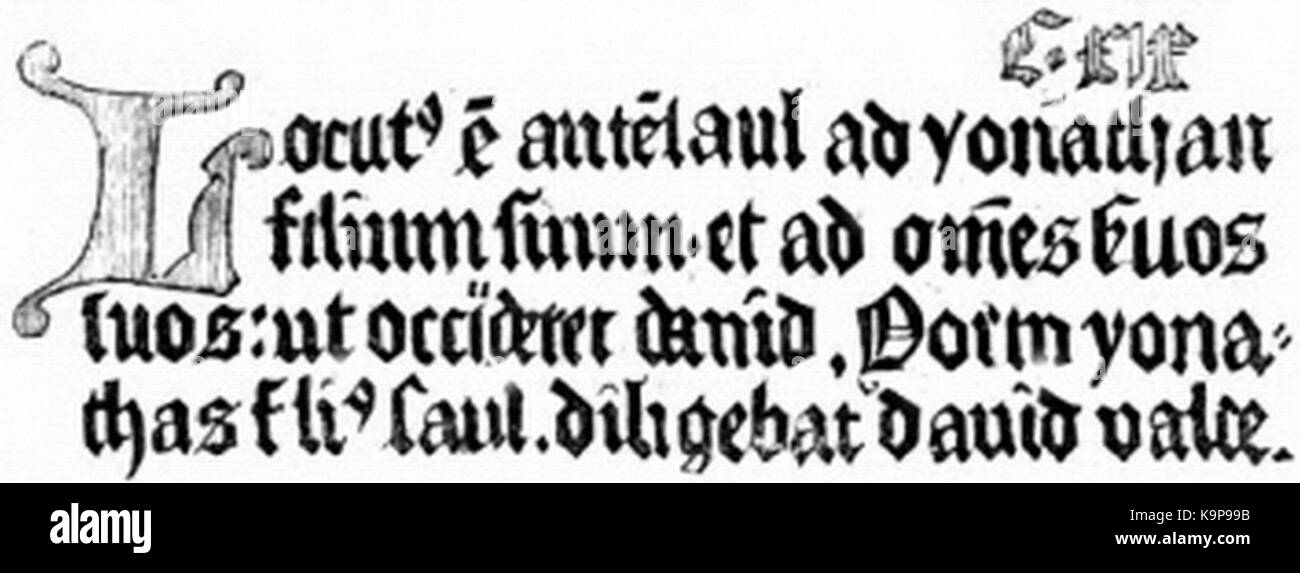 Locutꝰ ē autē ſaul ad yonathan
filium ſuum. et ad om̄es ẜuos
ſuos: ut occideret dauid. Porro yona⸗
thas filiꝰ ſaul. diligebat dauid valde.
alamy
alamy
Image ID: K9P99B
www.alamy.com